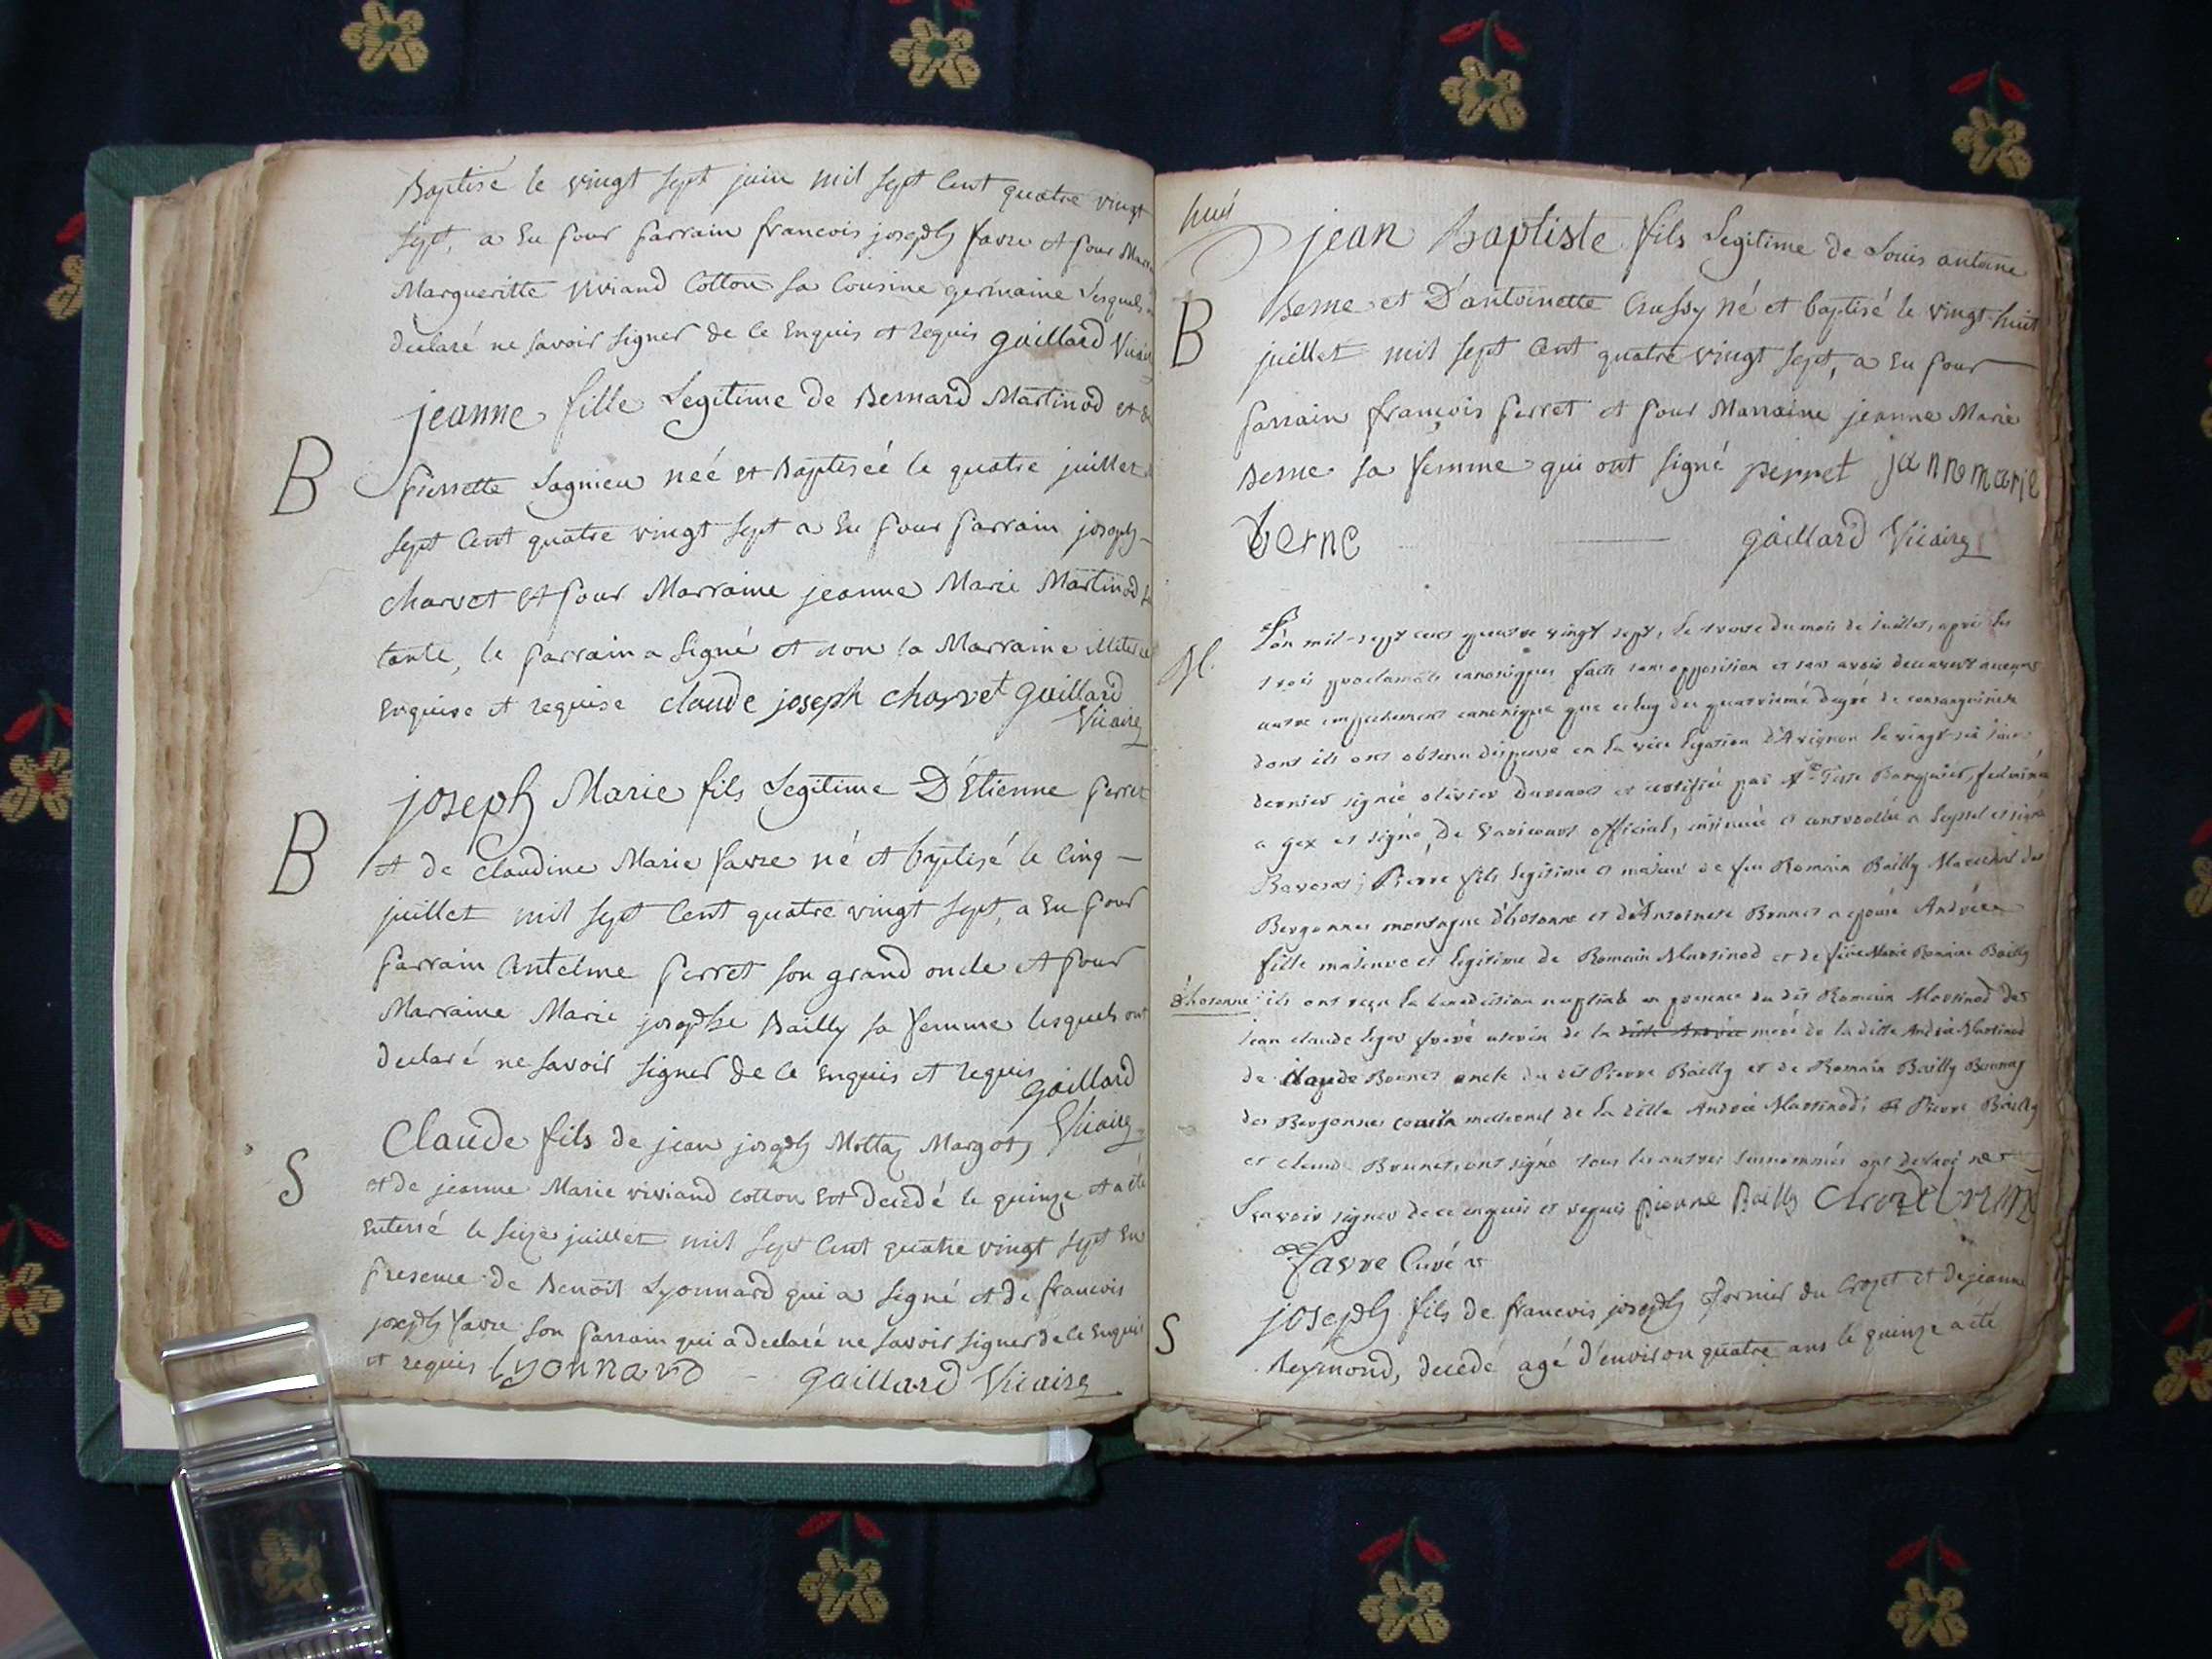 Baptisé le vingt sept juin mil sept Cent quatre vingt
sept, a Eu pour parrain francois joseph favre et pour
Margueritte viviand Cotton sa Cousine germaine lesquels
declaré ne savoir signer de ce Enquis et requis gaillard Vicaire
B
jeanne fille Legitime de Bernard Martinod et de
pierrette Lagnieu née et Baptiseé le quatre juillet
sept Cent quatre vingt sept a Eu pour parrain joseph
charvet et pour Marraine jeanne Marie Martinod
tante, le parrain a signé et non la Marraine
Enquise et requise claude joseph charvet gaillard
Vicaire
B
joseph Marie fils Legitime D'Etienne perret
et de claudine Marie favre né et baptisé le Cinq
juillet mil sept Cent quatre vingt sept, a Eu pour
parrain antelme perret son grand oncle et pour
Marraine Marie josephe Bailly sa femme lesquels ont
declaré ne savoir signer de ce Enquis et requis gaillard
Vicaire
S
Claude fils de jean joseph Mottaz Margot,
et de jeanne Marie viviand cotton est decedé le quinze et a été
Enterré le seize juillet mil sept Cent quatre vingt sept En
presence de Benoit Lyonnard qui a signé et de francois
joseph favre son parrain qui a declaré ne savoir signer de ce Enquis
et requis Lyonnard gaillard Vicaire
B
jean Baptiste fils Legitime de Louis antoine
Berne et D'antoinette né et baptisé le vingt huit
juillet mil sept Cent quatre vingt sept, a Eu pour
parrain françois perret et pour Marraine jeanne Marie
Berne sa femme qui ont signé perret jannemarie
berne gaillard Vicaire
M.
L'an mil-sept cent quatre vingt sept, le du mois de juillet, après les
trois proclamats canoniques faits sans opposition et sans avoir decouvert aucun
autre empechement canonique que celuy du quatrieme degré de consanguinité
dont ils ont obtenu dispense en la vice legation d'Avignon le vingt-six
dernier signée olivier et certifiée par Banquier, fulminée
a gex et signé, de official, insinuée et controllée a et signé
Pierre fils legitime et majeur de feu Romain Bailly Marechal des
Bergonnes montagne d'hotonne et d'Antoinette Brunet a epousé Andrée
fille mineure et legitime de Romain Martinod et de Romaine Bailly
d'hotonne ils ont reçu la benediction nuptiale en presence du dit Romain Martinod de
jean claude leger frere uterin de la ditte Andrée mere de la ditte Andrée Martinod
de claude Brunet oncle du dit Pierre Bailly et de Romain Bailly
des Bergonnes cousin maternel de la ditte Andrée Martinod; Pierre Bailly
et claude Brunet, ont signé tous les autres susnommés ont declaré ne
savoir signer de ce enquis et requis pierre Bailly
favre Curé
S
joseph fils de francois joseph fornier du Crozet et de jeanne
Reymond, decedé agé d'environ quatre ans le quinze a été